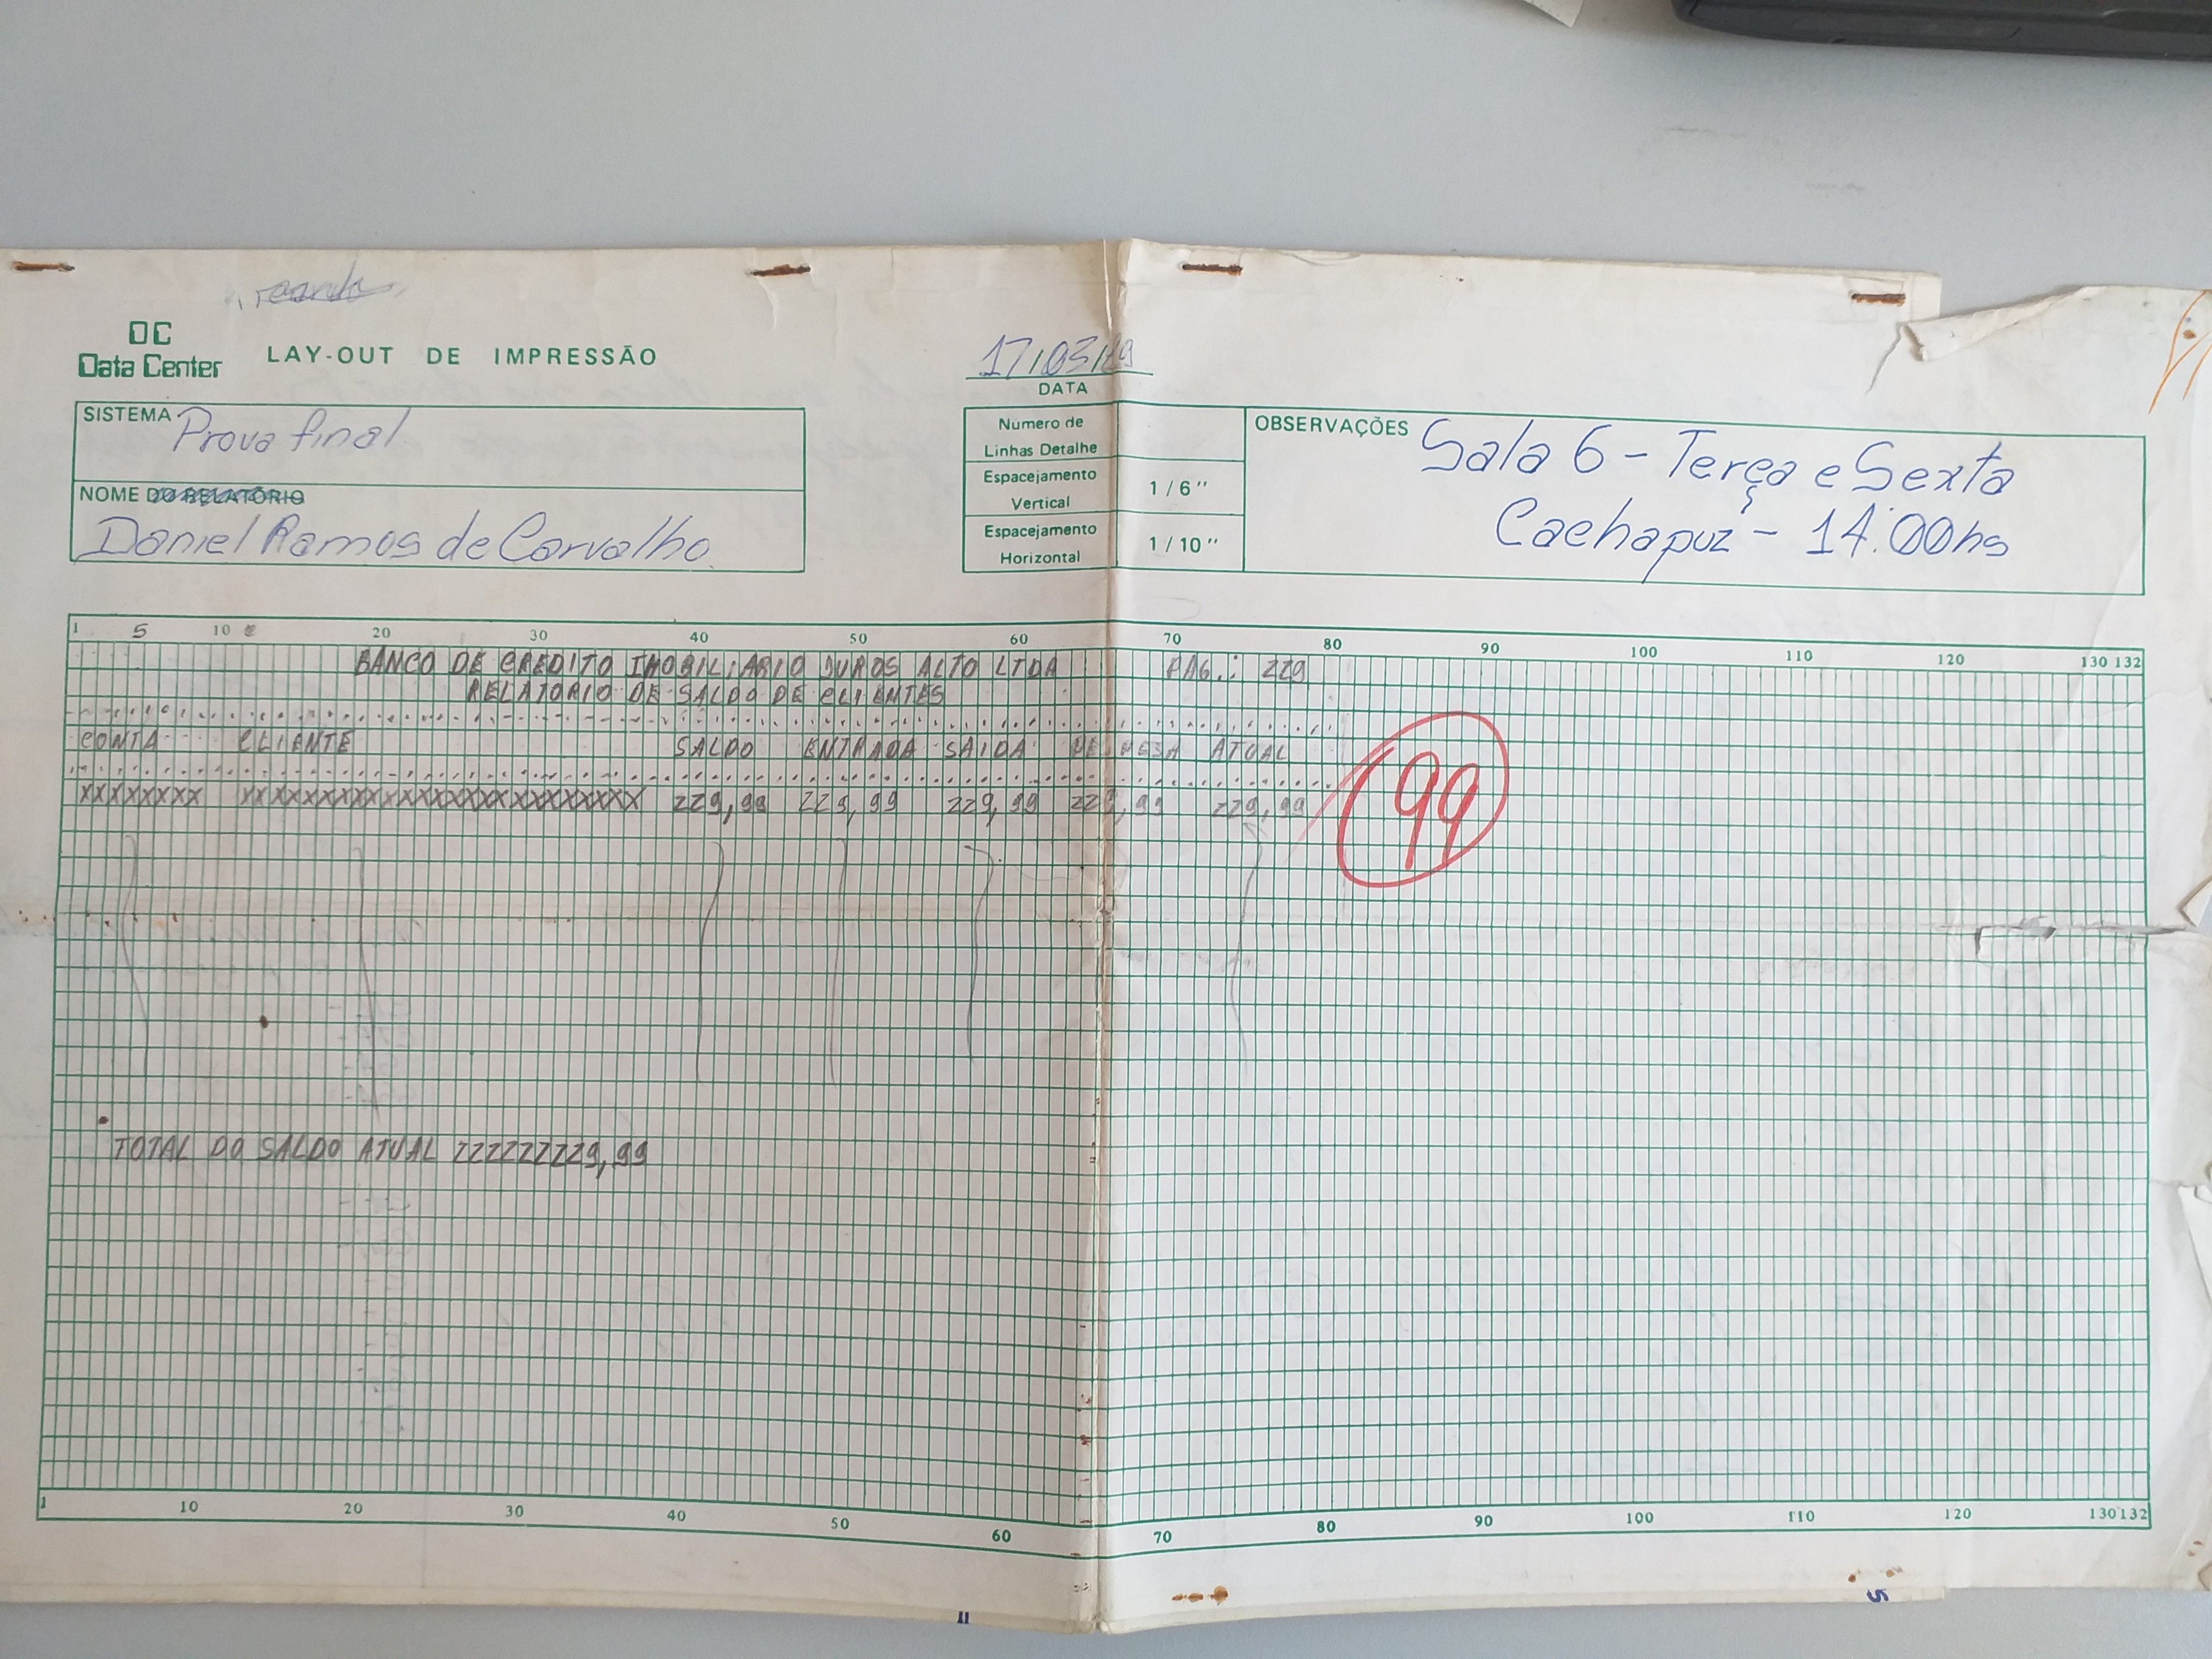 DC
Data Center
LAY-OUT DE IMPRESSÃO
17/03/
DATA
SISTEMA Prova final
NOME DO RELATÓRIO
Daniel Ramos de Carvalho.
Número de
Linhas Detalhe
Espacejamento
Vertical
1 / 6"
Espacejamento
Horizontal
1 / 10"
OBSERVAÇÕES Sala 6 - Terça e Sexta
Cachapuz - 14:00hs
1 5 10 20 30 40 50 60 70 80 90 100 110 120 130 132
BANCO DE CREDITO IMOBILIARIO JUROS ALTO LTDA PAG.: ZZ9
RELATORIO DE SALDO DE CLIENTES
CONTA CLIENTE SALDO ENTRADA SAIDA ATUAL
XXXXXXXX XXXXXXXXXXXXXXXXXXXXXXXXX ZZ9,99 ZZ9,99 ZZ9,99 ZZ9,99 ZZ9,99
99
TOTAL DO SALDO ATUAL ZZZZZZZZ9,99
1 10 20 30 40 50 60 70 80 90 100 110 120 130 132